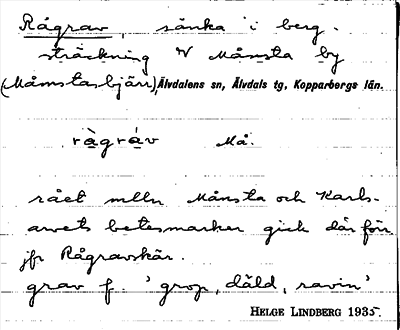 Rågrav, sänka i berg.
sträckning N Månsta by
(Månstasbjärr), Älvdalens sn, Älvdals tg, Kopparbergs län.
ràgráv Må.
rået mlln Månsta och Karls-
arvets betesmarker gick där förr
jfr Rågravskär.
grav f. 'grop, däld, ravin'
HELGE LINDBERG 1935.